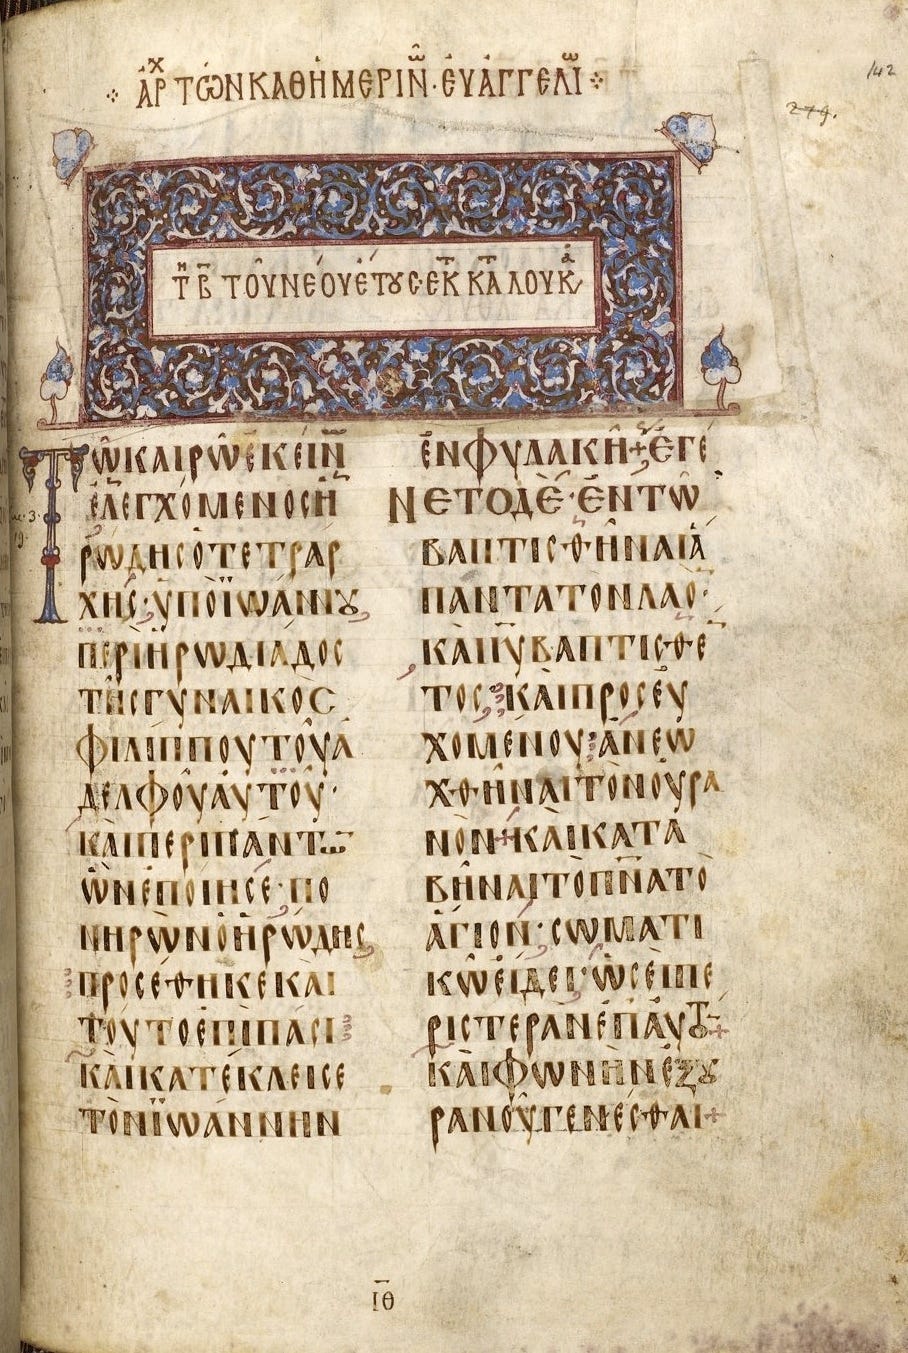 ἈΡΧ ΤΩ͂Ν ΚΑΘΗΜΕΡΙΝΩ͂ · ΕΥΑΓΓΕΛΙΩ͂
142
279.
ΤΗ Β̄ ΤΟΥ ΝΕΟΥ ΕΤΟΥϹ · ΕΚ Τ Κ ΚΑΤ ΛΟΥΚΑ
ΤΩ ΚΑΙΡΩ ΕΚΕΙΝ
ΕΛΕΓΧΟΜΕΝΟϹ Η
ΡΩΔΗϹ Ο ΤΕΤΡΑΡ
ΧΗϹ · ΥΠΟ ΪΩΑΝΝΟΥ
ΠΕΡΙ ΗΡΩΔΙΑΔΟϹ
ΤΗϹ ΓΥΝΑΙΚΟϹ
ΦΙΛΙΠΠΟΥ ΤΟΥ Α
ΔΕΛΦΟΥ ΑΥΤΟΥ ·
ΚΑΙ ΠΕΡΙ ΠΑΝΤΩ̄
ΩΝ ΕΠΟΙΗϹΕ · ΠΟ
ΝΗΡΩΝ Ο ΗΡΩΔΗϹ
ΠΡΟϹΕΘΗΚΕ ΚΑΙ
ΤΟΥΤΟ ΕΠΙ ΠΑϹΙ
ΚΑΙ ΚΑΤΕΚΛΕΙϹΕ
ΤΟΝ ΪΩΑΝΝΗΝ
ΕΝ ΦΥΛΑΚΗ + ΕΓΕ
ΝΕΤΟ ΔΕ · ΕΝ ΤΩ
ΒΑΠΤΙϹΘΗΝΑΙ Α
ΠΑΝΤΑ ΤΟΝ ΛΑΟ ·
ΚΑΙ ΙΥ ΒΑΠΤΙϹΘΕ
ΤΟϹ · ΚΑΙ ΠΡΟϹΕΥ
ΧΟΜΕΝΟΥ · ΑΝΕΩ
ΧΘΗΝΑΙ ΤΟΝ ΟΥΡΑ
ΝΟΝ + ΚΑΙ ΚΑΤΑ
ΒΗΝΑΙ ΤΟ ΠΝ̄Α ΤΟ
ΑΓΙΟΝ · ϹΩΜΑΤΙ
ΚΩ ΕΙΔΕΙ · ΩϹΕΙ ΠΕ
ΡΙϹΤΕΡΑΝ ΕΠ ΑΥΤΟ̄ +
ΚΑΙ ΦΩΝΗΝ ΕΞ ΟΥ
ΡΑΝΟΥ ΓΕΝΕϹΘΑΙ +
ΙΘ